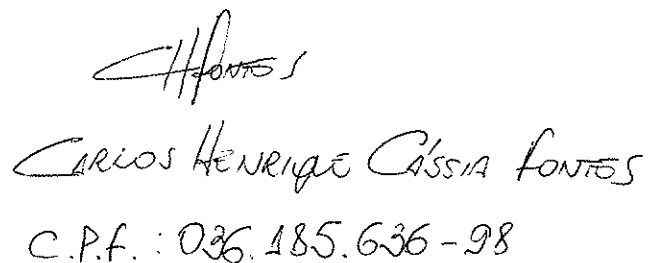 CHFONTES
CARLOS HENRIQUE CÁSSIA FONTES
C.P.F. : 036.185.636-98